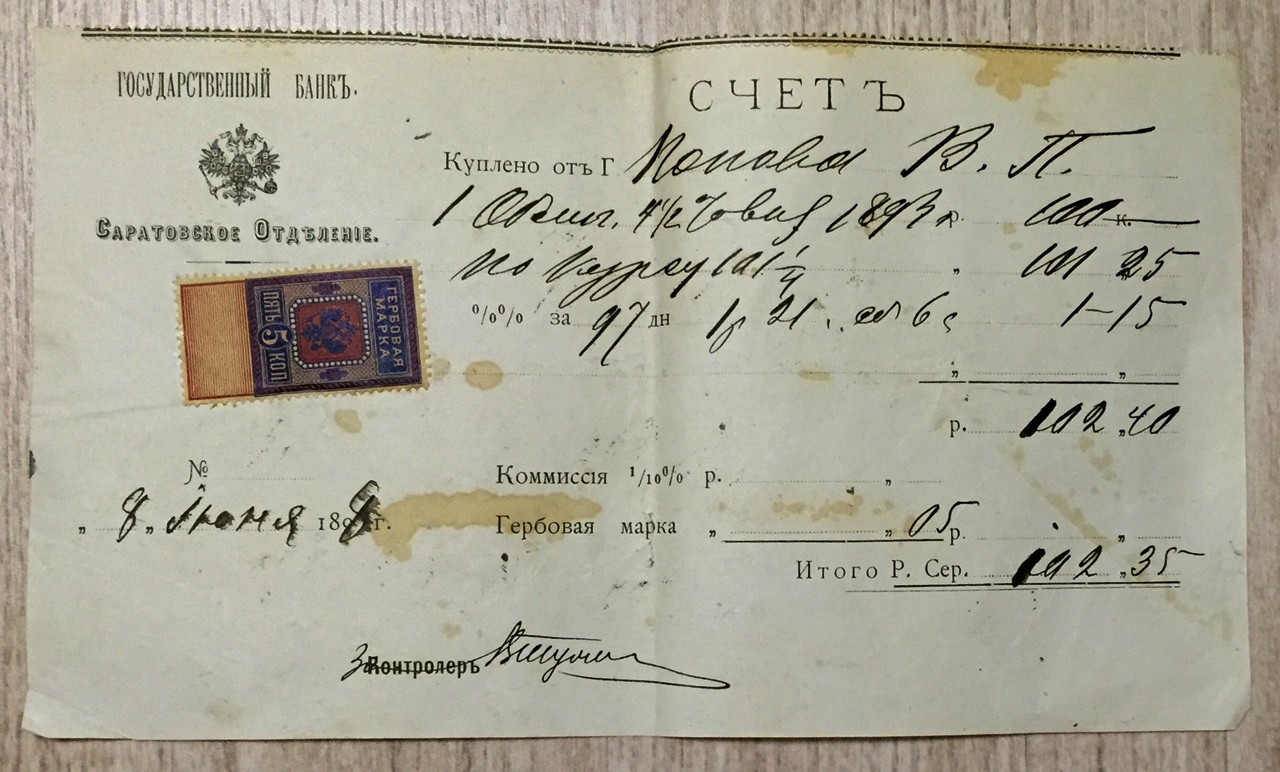 ГОСУДАРСТВЕННЫЙ БАНКЪ.
САРАТОВСКОЕ ОТДѢЛЕНІЕ.
ГЕРБОВАЯ МАРКА
ПЯТЬ 5 КОП
СЧЕТЪ
Куплено отъ Г Попова В. П.
1 4½ 1893 р. 100 к.
по курсу 101 ¼ „ 101 25
%% за 97 дн 1 р 21 1-15
„ „
р. 102 „ 40
Коммиссія 1/10% р. „
Гербовая марка „ „ 05 р. „
Итого Р. Сер. 102 „ 35
№
„ 8 „ Іюня 189 г.
За Контролеръ